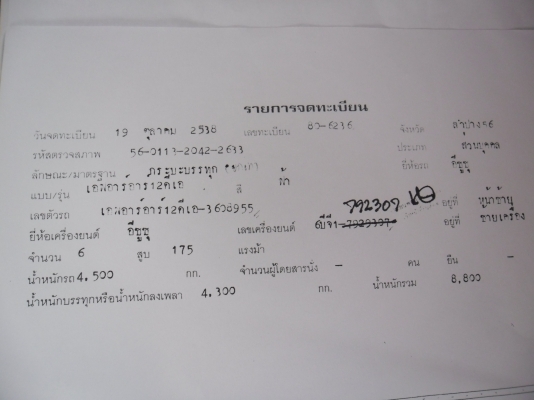 รายการจดทะเบียน
วันจดทะเบียน 19 ตุลาคม 2538 เลขทะเบียน 80-6236 จังหวัด ลำปาง56
รหัสตรวจสภาพ 56-0113-2042-2633 ประเภท ส่วนบุคคล
ลักษณะ/มาตรฐาน กระบะบรรทุก ยี่ห้อรถ อีซูซุ
แบบ/รุ่น เอฟอาร์อาร์12คีเอ สี ฟ้า
เลขตัวรถ เอฟอาร์อาร์12คีเอ-3608955 792307 อยู่ที่ หูหน้าซ้าย
ยี่ห้อเครื่องยนต์ อีซูซุ เลขเครื่องยนต์ 6บีจี1- อยู่ที่ ซ้ายเครื่อง
จำนวน 6 สูบ 175 แรงม้า
น้ำหนักรถ 4,500 กก. จำนวนผู้โดยสารนั่ง - คน ยืน -
น้ำหนักบรรทุกหรือน้ำหนักลงเพลา 4,300 กก. น้ำหนักรวม 8,800